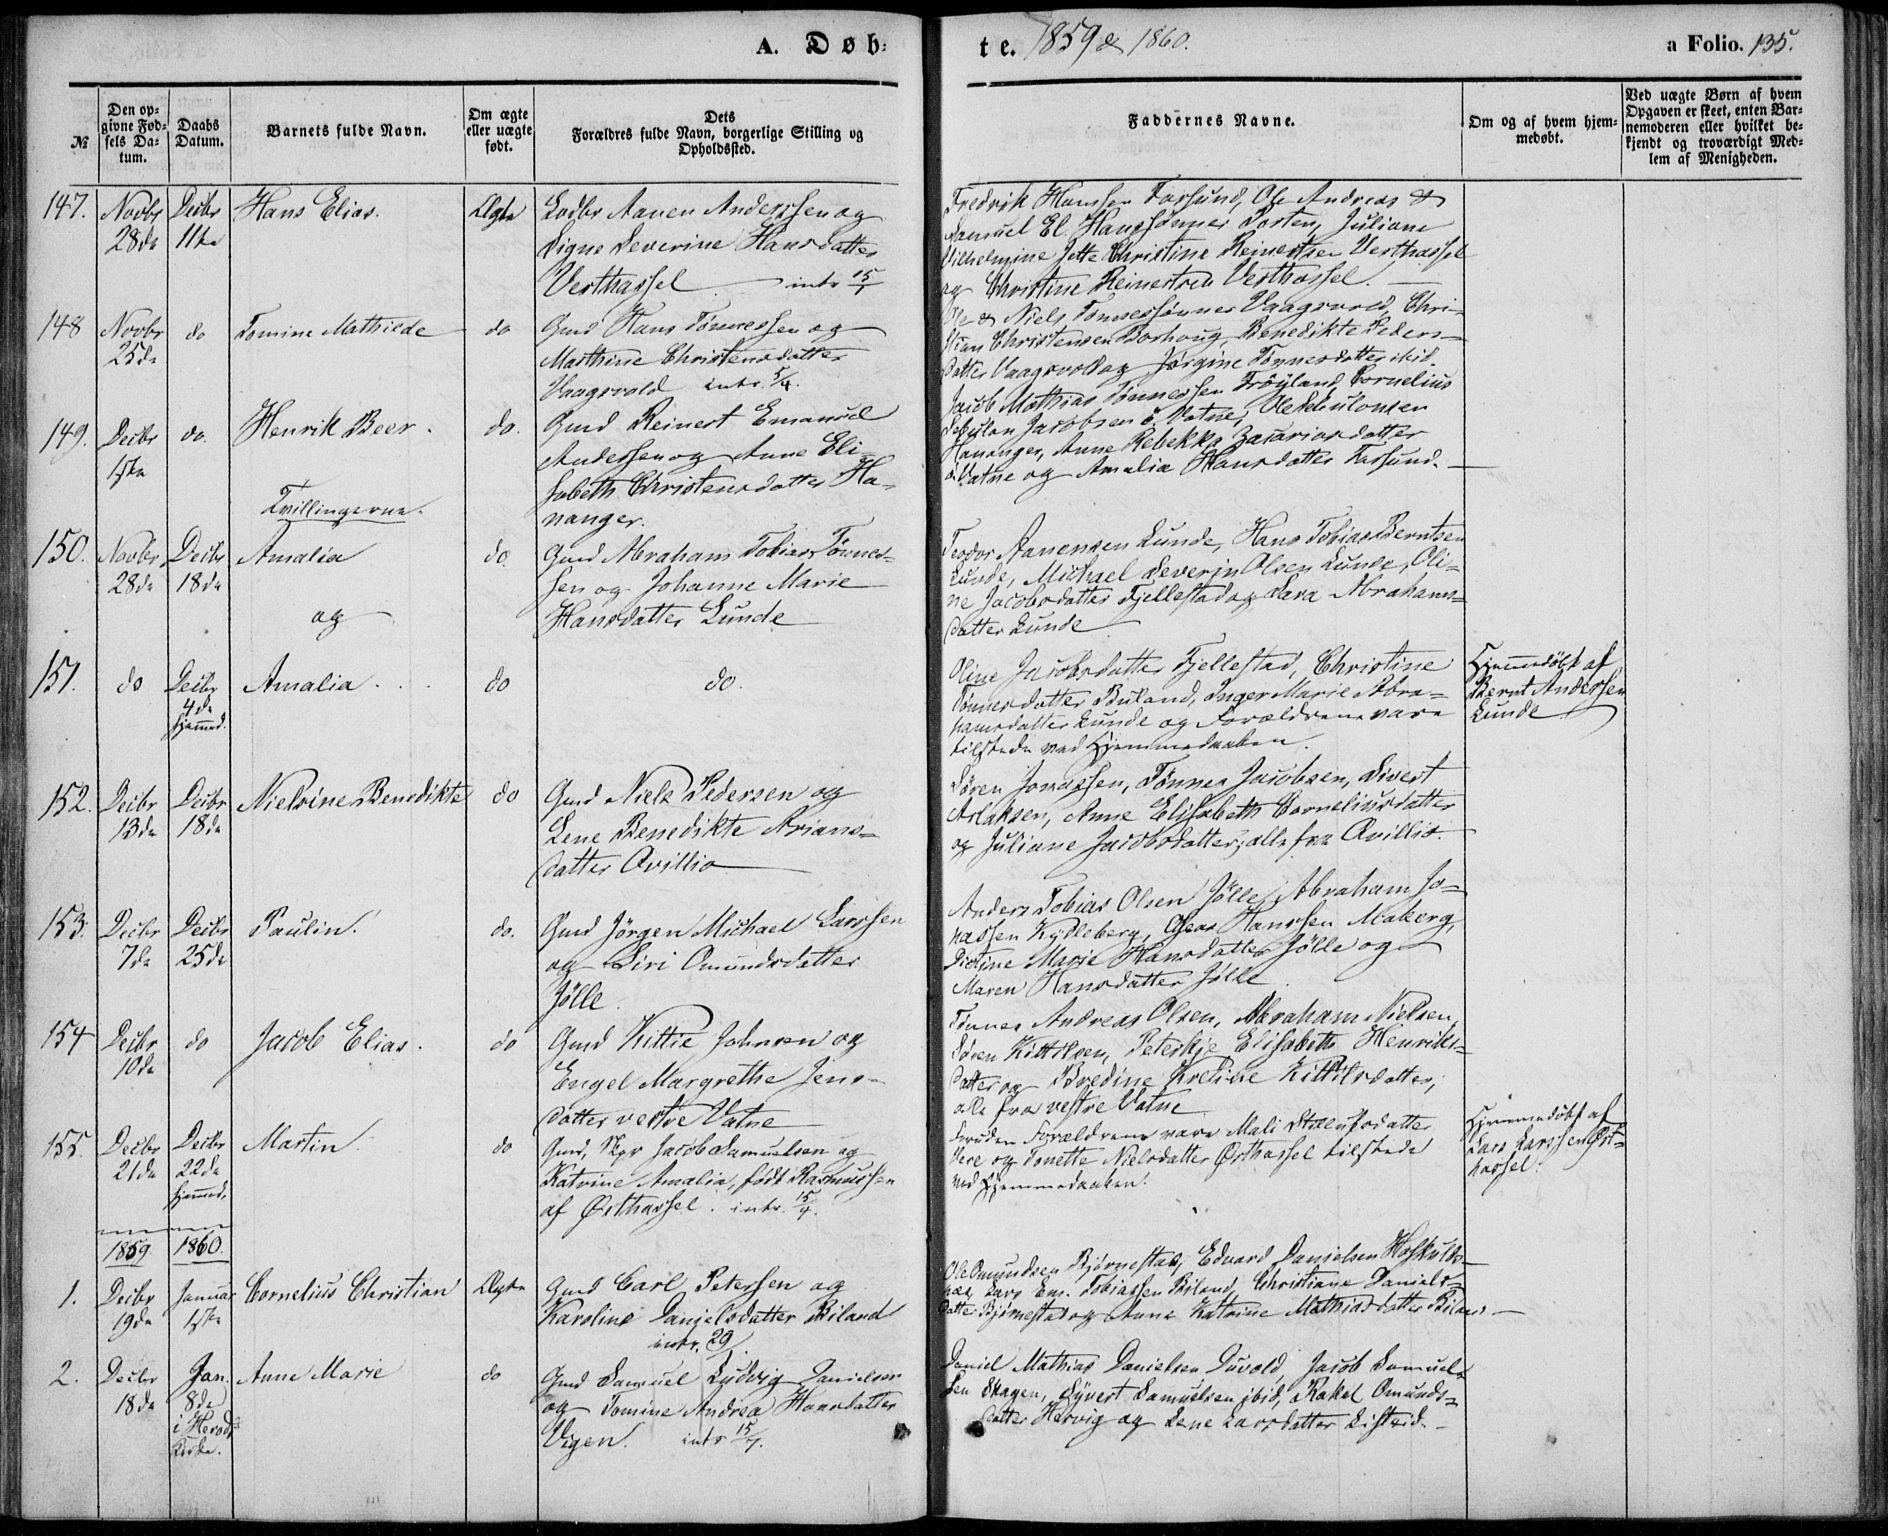 A. Døb=
te. 1859 & 1860.
a Folio. 135.
№
Den op=
givne Fød=
sels Da=
tum.
Daabs
Datum.
Barnets fulde Navn.
Om ægte
eller uægte
født.
Dets
Forældres fulde Navn, borgerlige Stilling og
Opholdssted.
Faddernes Navne.
Om og af hvem hjem=
medøbt.
Ved uægte Børn af hvem
Opgaven er skeet, enten Bar=
nemoderen eller hvilket be=
kjendt og troværdigt Med=
lem af Menigheden.
147. Novbr 28de
Decbr 11te
Hans Elias.
Ægte
Lodbr Aanen Anderssen og
Signe Severine Hansdatter
Vesthassel intr 15/1
Fredrik Hanssen Farsund, Ole Andreas &
Samuel El. Hanssønner Torsten, Juliane
Vilhelmine Jette Christine Reinertsen Vesthassel
og Christine Reinertsen Vesthassel.
148 Novbr 25de
do
Tomine Mathilde
do
Gmd Hans Tønnessen og
Marthine Christensdatter
Vaagsvold intr. 5/4.
Ole & Niels Tønnessønner Vaagsvold, Chri-
stian Christensen Borhoug, Benedikte Peders-
datter Vaagsvold og Jørgine Tønnesdatter ibid.
149. Decbr 1ste
do.
Henrik Beer.
do.
Gmd Reinert Emanuel
Anderssen og Anne Eli-
sabeth Christensdatter Ha-
nanger.
Jacob Mathias Tønnessen Frøyland, Cornelius
Jacobsen ø. Vatne,
Hananger, Anne Rebekka Zacariasdatter
ø. Vatne og Amalia Hansdatter Farsund.
Tvillingerne.
150. Novbr 28de
Decbr 18de
Amalia
og
do.
Gmd Abraham Tobias Tønnes-
sen og Johanne Marie
Hansdatter Lunde
Teodor Aanensen Lunde, Hans Tobias Berntsen
Lunde, Michael Severin Olsen Lunde, Oli-
ne Jacobsdatter Fjellestad og Sara Abrahams-
datter Lunde
151. do
Decbr 4de hjemmed.
Amalia . . .
do
do.
Oline Jacobsdatter Fjellestad, Christine
Tønnesdatter Buland, Inger Marie Abra-
hamsdatter Lunde og Forældrene vare
tilstede ved Hjemmedaaben.
Hjemmedøbt af
Bernt Anderssen
Lunde
152. Decbr 13de
Decbr 18de
Nielsine Benedikte
do
Gmd Niels Pedersen og
Lene Benedikte Arians-
datter Qvillio
Søren Jonassen, Tønnes Jacobsen, Sivert
Aslaksen, Anne Elisabeth Corneliusdatter
og Juliane Jacobsdatter, alle fra Qvillio.
153. Decbr 7de
Decbr 25de
Paulin.
do.
Gmd Jørgen Michael Larssen
og Siri Omundsdatter
Jølle.
Anders Tobias Olsen Jølle, Abraham Jo-
nassen Kydleberg, Hanssen Maberg,
Marie Hansdatter Jølle og
Maren Hansdatter Jølle.
154 Decbr 10de
do
Jacob Elias.
do
Gmd Kittil Johnsen og
Engel Margrethe Jens-
datter vestre Vatne
Tønnes Andreas Olsen, Abraham Nielsen,
Søren Kittilsen, Peterkje Elisabeth Henriks-
datter og Bredine Kittilsdatter,
alle fra vestre Vatne
155. Decbr 21de
Decbr 22de hjemmed.
Martin.
do
Gmd, Skpr Jacob Samuelsen og
Katrine Amalia, født Rasmussen
af Østhassel. intr. 15/4.
Foruden Forældrene vare Mali
Vere og Tonette Nielsdatter Østhassel tilstede
ved Hjemmedaaben.
Hjemmedøbt af
Lars Larssen Øst-
hassel.
1859 1860.
1. Decbr 19de
Januar 1ste
Cornelius Christian
Ægte
Gmd Carl Petersen og
Karoline Danielsdatter Biland
intr. 29/
Ole Omundsen Bjørnestad, Edvard Danielsen
Lars Em. Tobiassen Biland, Christiane Daniels-
datter Bjørnestad og Anne Katrine Mathiasdatter Biland
2. Decbr 18de
Jan. 8de
i Herods
Kirke.
Anne Marie
do
Gmd Samuel Ludvig Danielsen
og Tomine Andrea Hansdatter
Vigen. intr 15/7.
Daniel Mathias Danielsen Duvold, Jacob Samuel-
sen Skagen, Syvert Samuelsen ibid, Rakel Omunds-
datter Hervig og Lene Larsdatter